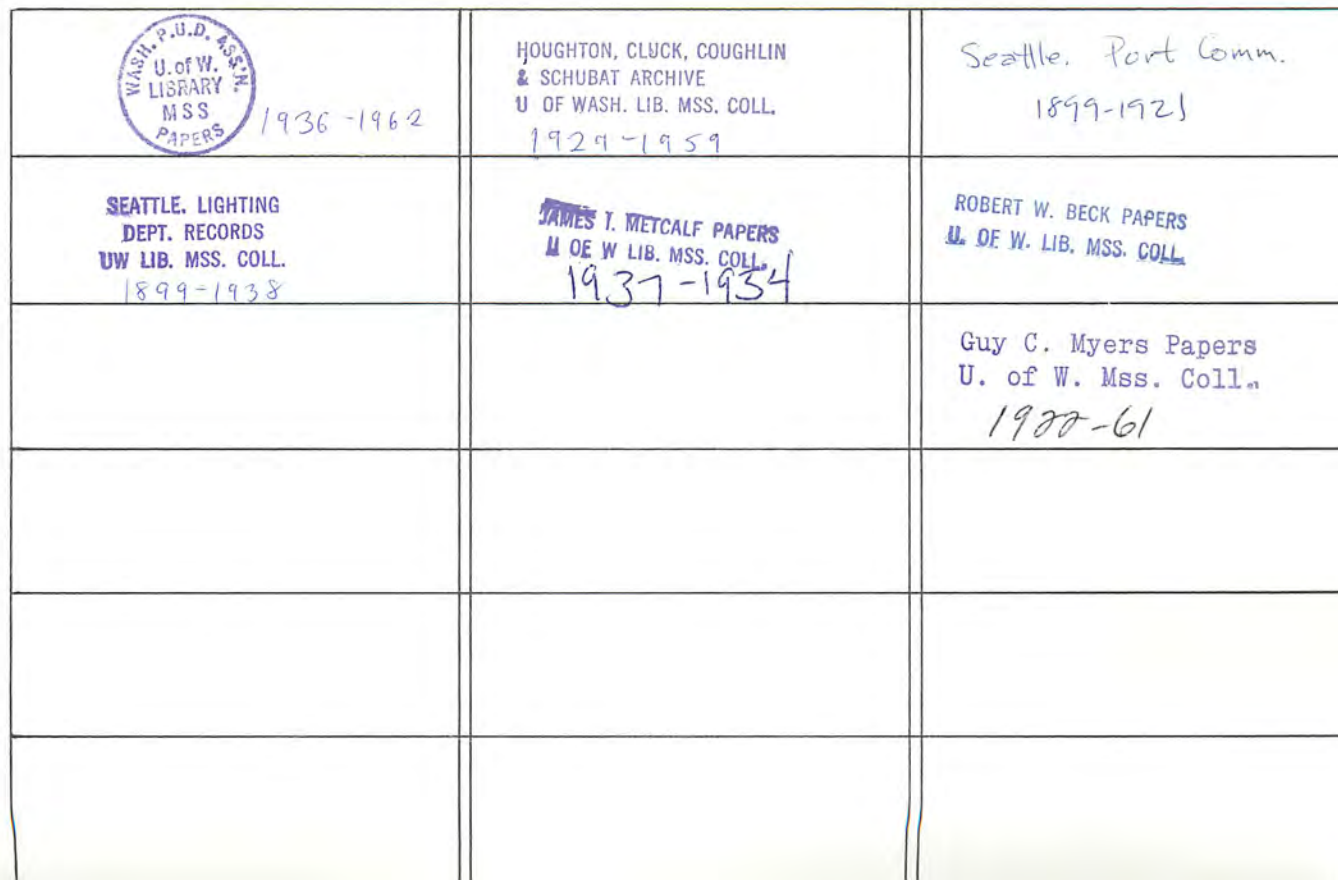 WASH. P.U.D. ASS'N.
U. of W.
LIBRARY
MSS
PAPERS
1936-1962
HOUGHTON, CLUCK, COUGHLIN
& SCHUBAT ARCHIVE
U OF WASH. LIB. MSS. COLL.
1929-1959
Seattle. Port Comm.
1899-1921
SEATTLE. LIGHTING
DEPT. RECORDS
UW LIB. MSS. COLL.
1899-1938
JAMES T. METCALF PAPERS
U OF W LIB. MSS. COLL.
1937-1954
ROBERT W. BECK PAPERS
U. OF W. LIB. MSS. COLL.
Guy C. Myers Papers
U. of W. Mss. Coll.
1922-61